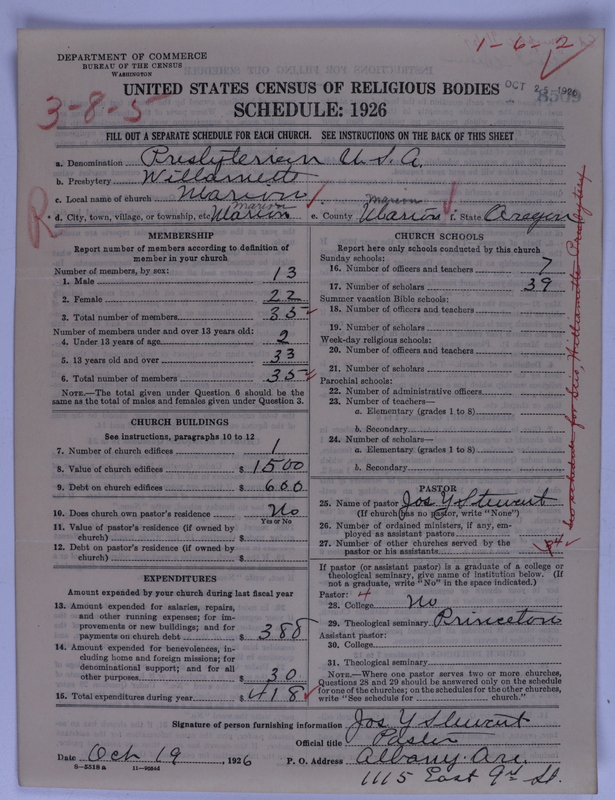 1-6-2
DEPARTMENT OF COMMERCE
BUREAU OF THE CENSUS
WASHINGTON
OCT 25 1926
8509
3-8-5
UNITED STATES CENSUS OF RELIGIOUS BODIES
SCHEDULE: 1926
FILL OUT A SEPARATE SCHEDULE FOR EACH CHURCH. SEE INSTRUCTIONS ON THE BACK OF THIS SHEET
a. Denomination Presbyterian U.S.A.
b. Presbytery Willamette
c. Local name of church Marion
R * d. City, town, village, or township, etc. Marion Marion e. County Marion Marion f. State Oregon
MEMBERSHIP
Report number of members according to definition of
member in your church
Number of members, by sex:
1. Male 13
2. Female 22
3. Total number of members 35
Number of members under and over 13 years old:
4. Under 13 years of age 2
5. 13 years old and over 33
6. Total number of members 35
NOTE.—The total given under Question 6 should be
same as the total of males and females given under Question 3.
CHURCH BUILDINGS
See instructions, paragraphs 10 to 12
7. Number of church edifices 1
8. Value of church edifices $ 1500
9. Debt on church edifices $ 600
10. Does church own pastor's residence No
Yes or No
11. Value of pastor's residence (if owned by
church) $
12. Debt on pastor's residence (if owned by
church) $
EXPENDITURES
Amount expended by your church during last fiscal year
13. Amount expended for salaries, repairs,
and other running expenses; for im-
provements or new buildings; and for
payments on church debt $ 388
14. Amount expended for benevolences, in-
cluding home and foreign missions; for
denominational support; and for all
other purposes $ 30
15. Total expenditures during year $ 418
CHURCH SCHOOLS
Report here only schools conducted by this church
Sunday schools:
16. Number of officers and teachers 7
17. Number of scholars 39
Summer vacation Bible schools:
18. Number of officers and teachers
19. Number of scholars
Week-day religious schools:
20. Number of officers and teachers
21. Number of scholars
Parochial schools:
22. Number of administrative officers
23. Number of teachers—
a. Elementary (grades 1 to 8)
b. Secondary
24. Number of scholars—
a. Elementary (grades 1 to 8)
b. Secondary
PASTOR
25. Name of pastor Jos Y Stewart
(If church has no pastor, write "None")
26. Number of ordained ministers, if any, em-
ployed as assistant pastors
27. Number of other churches served by the
pastor or his assistants 4
If pastor (or assistant pastor) is a graduate of a college or
theological seminary, give name of institution below. (If
not a graduate, write "No" in the space indicated.)
Pastor: 4
28. College No
29. Theological seminary Princeton
Assistant pastor:
30. College
31. Theological seminary
NOTE.—Where one pastor serves two or more churches,
Questions 28 and 29 should be answered only on the schedule
for one of the churches; on the schedules for the other churches,
write "See schedule for church."
see schedule for Scio, Willamette Presbytery
Signature of person furnishing information Jos Y Stewart
Official title Pastor
Date Oct 19, 1926 P. O. Address Albany Ore.
8—5518 a 11—9056d
1115 East 9th St.